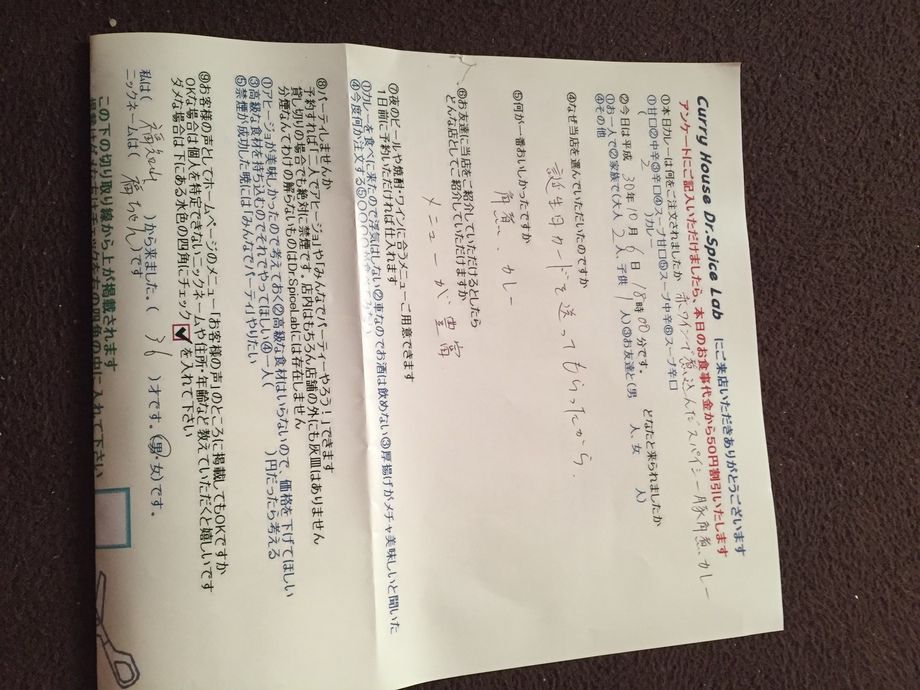 Curry House Dr.Spice Lab にご来店いただきありがとうございます
アンケートにご記入いただけましたら、本日のお食事代金から50円割引いたします
①本日カレーは何をご注文されましたか 赤ワインで煮込んだスパイシー豚角煮カレー
①甘口②中辛③辛口④スープ甘口⑤スープ中辛⑥スープ辛口
( 2 )カレー
②今日は平成 30年10月6日 18時00分です。 どなたと来られましたか
①お一人で②家族で(大人 2人、子供 1人)③お友達と(男 人、女 人)
④その他
④なぜ当店を選んでいただいたのですか
誕生日カードを送ってもらったから
⑤何が一番おいしかったですか
角煮、カレー
⑥お友達に当店をご紹介していただけるとしたら
どんな店としてご紹介していただけますか
メニューが豊富
⑦夜のビールや焼酎・ワインに合うメニューご用意できます
1日前に予約いただければ仕入れます
①カレーを食べに来たので浮気はしない②車なのでお酒は飲めない③厚揚げがメチャ美味しいと聞いた
④今度何か注文する⑤〇〇〇
⑧パーティしませんか
予約すれば「二人でアヒージョ」や「みんなでパーティーやろう!」できます
貸し切りの場合でも絶対に禁煙です。店内はもちろん店舗の外にも灰皿はありません
分煙なんてわけの解らないものはDr.SpiceLabには存在しません
①アヒージョが美味しかったので考えておく②高級な食材はいらないので、価格を下げてほしい
③高級な食材を持ち込むのでそれでやってほしい④一人( )円だったら考える
⑤禁煙が成功した暁には「みんなでパーティ」やりたい
⑨お客様の声としてホームページのメニュー「お客様の声」のところに掲載してもOKですか
OKな場合は個人を特定できないニックネームや住所・年齢など教えていただくと嬉しいです
ダメな場合は下にある水色の四角にチェック✓を入れて下さい
私は( 福知山 )から来ました。( 36 )才です。(男・女)です。
ニックネームは( 福ちゃん )です
この下の切り取り線から上が掲載されます